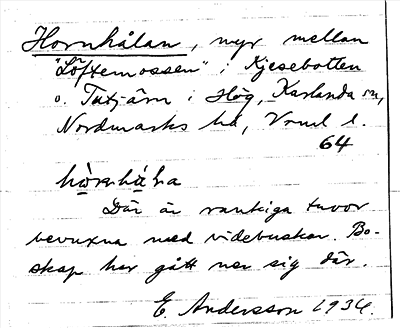 Hornhålan, myr mellan
"Löftemossen" i Kjesebotten
o. Tutjärn i Hög, Karlanda sn,
Nordmarks hd, Vrml l.
64
hὼrnhå̀la
Där är rankiga tuvor
bevuxna med videbuskar. Bo-
skap har gått ner sig där.
E. Andersson 1934.